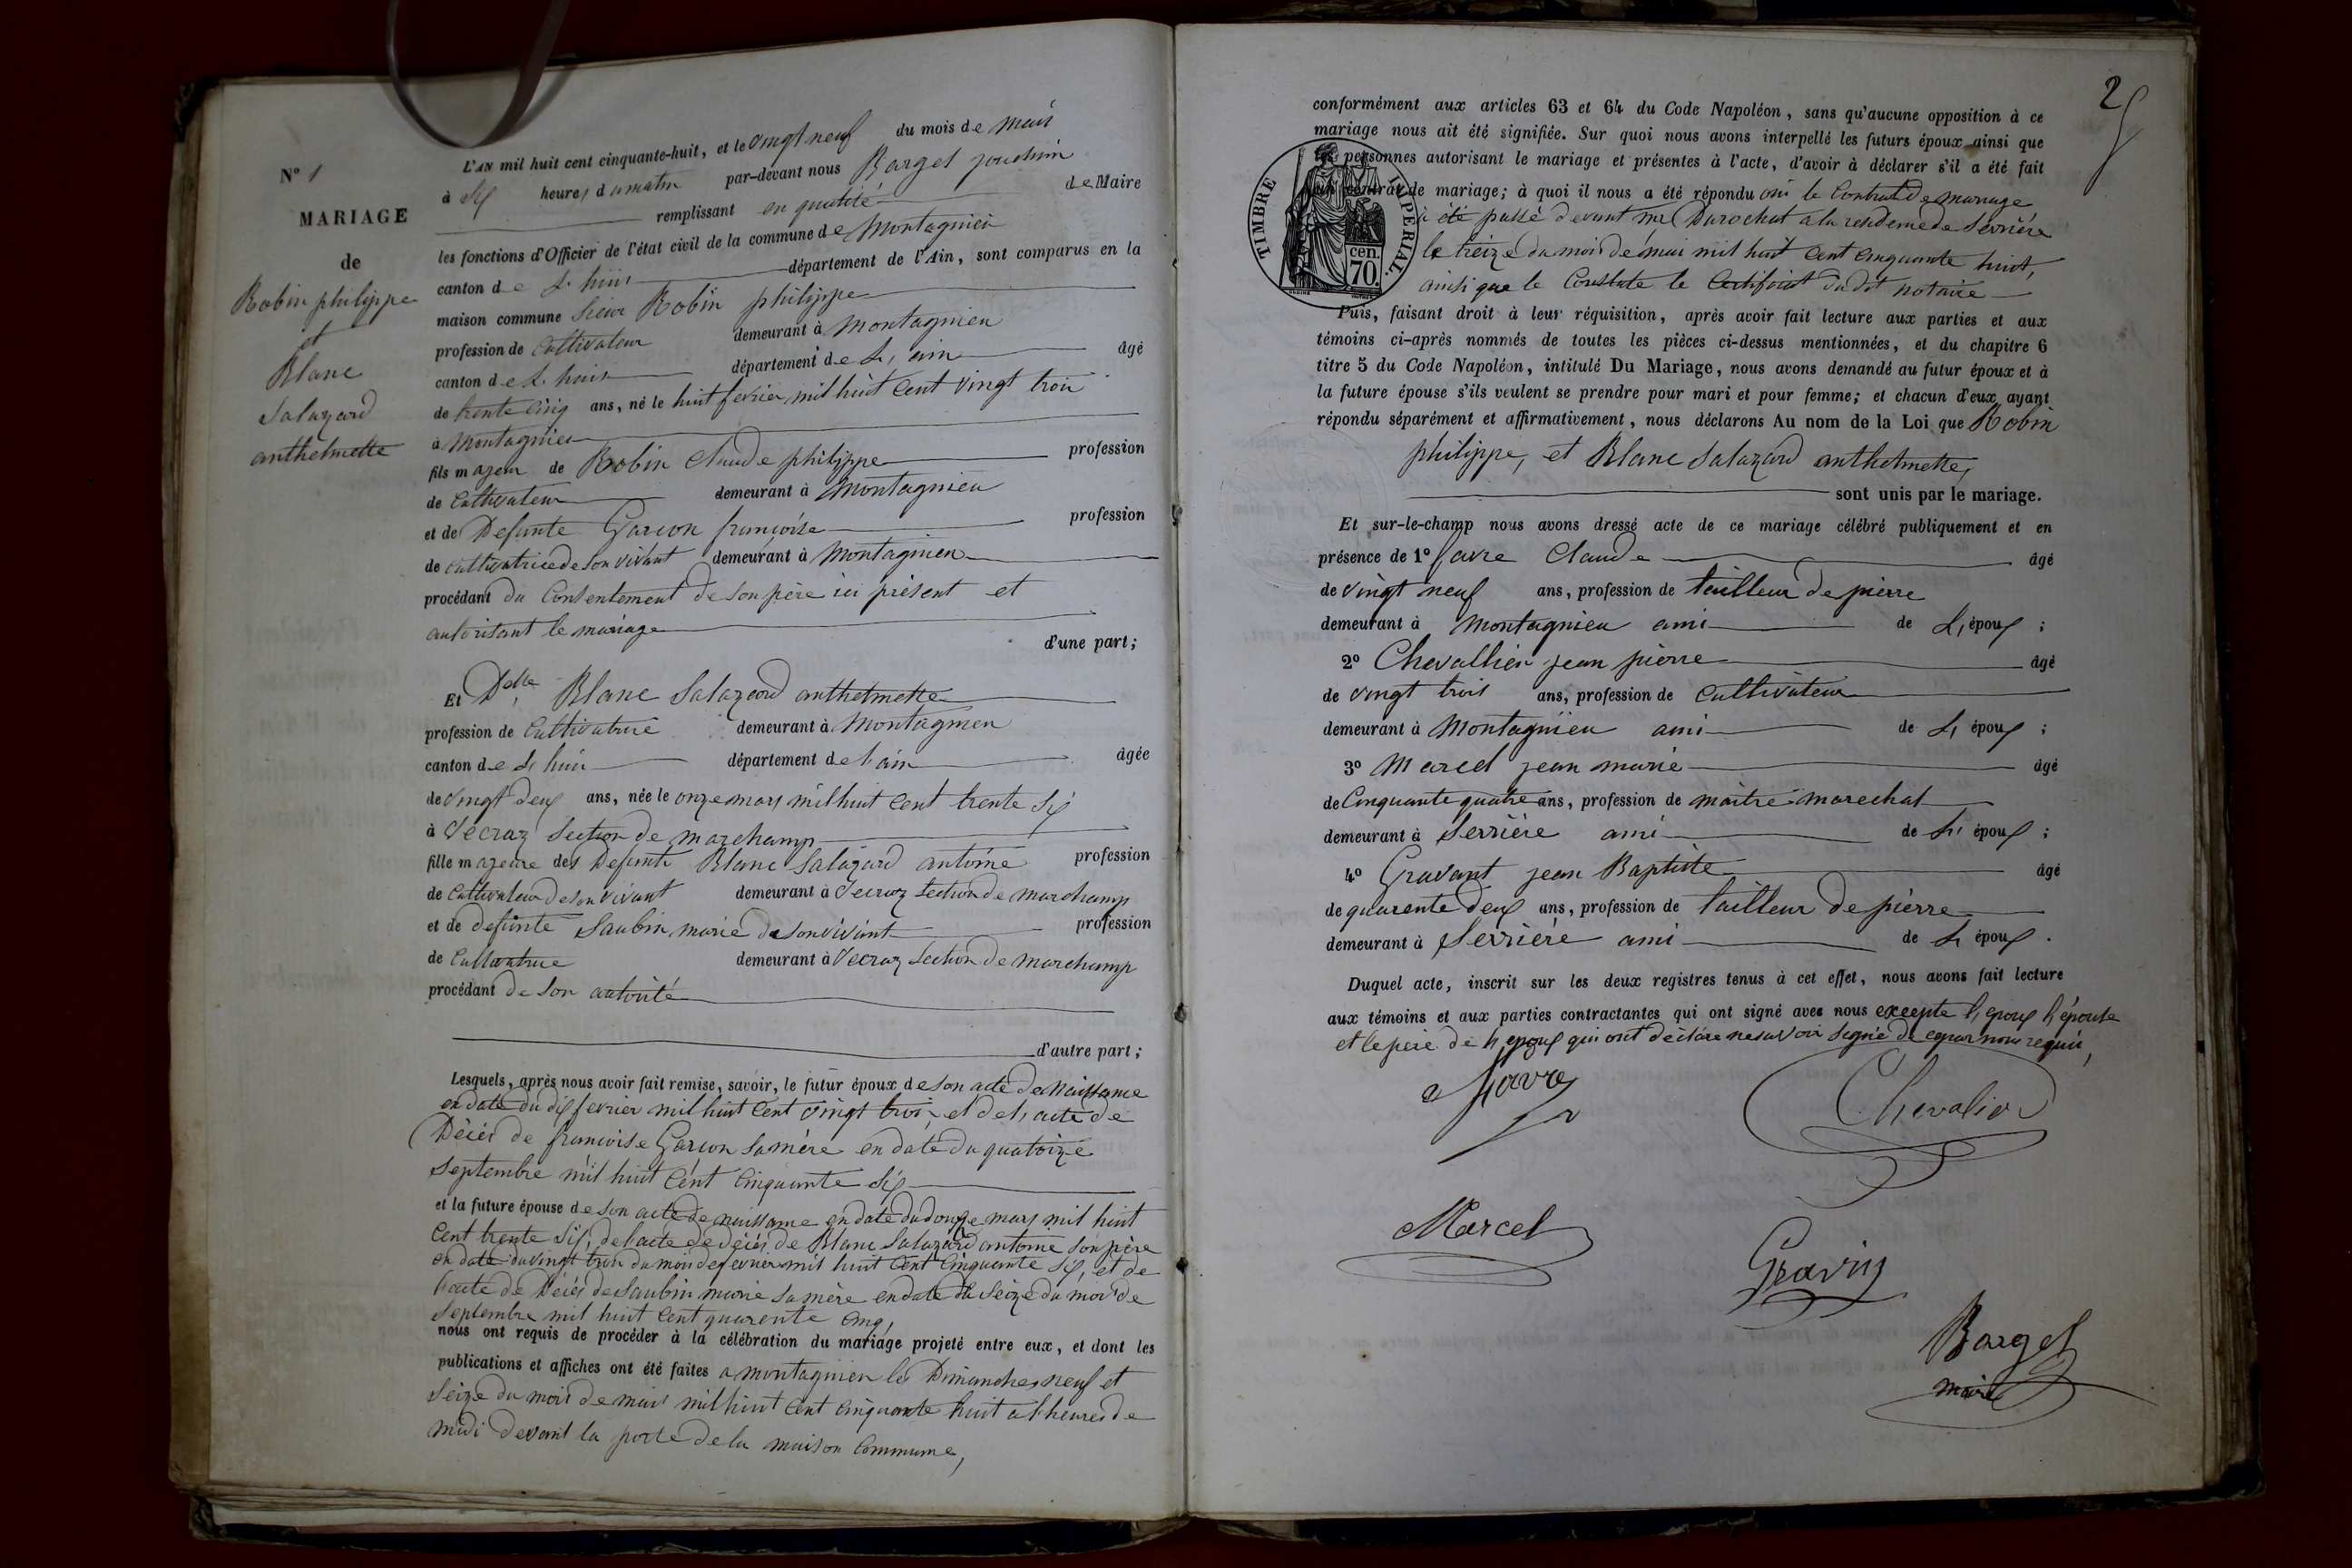 N° 1
MARIAGE
de
Robin philippe
et
Blanc
Salazard
anthelmette
L'AN mil huit cent cinquante-huit, et le vingt neuf du mois de mais
à six heures du matin par-devant nous Barget jouchim
remplissant en qualité de Maire
les fonctions d'Officier de l'état civil de la commune de Montagnieu
canton de L. huis département de l'Ain, sont comparus en la
maison commune Sieur Robin philippe
profession de Cultivateur demeurant à Montagnieu
canton de L. huis département de L, ain âgé
de trente cinq ans, né le huit fevrier mil huit Cent vingt trois
à Montagnieu
fils majeur de Robin Claude philippe profession
de Cultivateur demeurant à Montagnieu
et de Defunte Garcon francoise profession
de cultivatrice de Son vivant demeurant à Montagnieu
procédant du Consentement de son père ici présent et
autorisant le mariage
d'une part;
Et Delle Blanc Salazard anthelmette
profession de Cultivatrice demeurant à Montagnieu
canton de L, huis département de l'ain âgée
de vingt deux ans, née le onze mars mil huit cent trente six
à Cécraz Section de marchamp
fille majeure des Defunts Blanc Salazard antoine profession
de Cultivateur de son vivant demeurant à Cecraz Section de marchamp
et de defunte Saubin marie de son vivant profession
de Cultivatrice demeurant à Cecraz Section de marchamp
procédant de Son autorité
d'autre part;
Lesquels, après nous avoir fait remise, savoir, le futur époux de son acte de Naissance
en date du dix fevrier mil huit Cent vingt trois, et de L, acte de
Décés de francoise Garcon sa mère en date du quatorze
Septembre mil huit Cent Cinquante Six
et la future épouse de son acte de naissance en date du douze mars mil huit
Cent trente six, de l'acte de décés de Blanc Salazard antoine son père
en date du vingt trois du mois de fevrier mil huit Cent Cinquante Six, et de
l'acte de Décés de Saubin marie sa mère en date du Seize du mois de
Septembre mil huit Cent quarente cinq,
nous ont requis de procéder à la célébration du mariage projeté entre eux, et dont les
publications et affiches ont été faites a montagnieu les Dimanches neuf et
Seize du mois de mais mil huit Cent cinquante huit a l'heure de
midi devant la porte de la maison Commune,
25
conformément aux articles 63 et 64 du Code Napoléon, sans qu'aucune opposition à ce
mariage nous ait été signifiée. Sur quoi nous avons interpellé les futurs époux ainsi que
les personnes autorisant le mariage et présentes à l'acte, d'avoir à déclarer s'il a été fait
un contrat de mariage; à quoi il nous a été répondu oui le Contrat de mariage
à été passé devant me Durochat a la residence de Serrière
le treize du mois de mai mil huit cent cinquante huit,
ainsi que le Constate le Certificat dudit notaire
TIMBRE IMPERIAL. cen. 70.
Puis, faisant droit à leur réquisition, après avoir fait lecture aux parties et aux
témoins ci-après nommés de toutes les pièces ci-dessus mentionnées, et du chapitre 6
titre 5 du Code Napoléon, intitulé Du Mariage, nous avons demandé au futur époux et à
la future épouse s'ils veulent se prendre pour mari et pour femme; et chacun d'eux ayant
répondu séparément et affirmativement, nous déclarons Au nom de la Loi que Robin
philippe, et Blanc Salazard anthelmette,
sont unis par le mariage.
Et sur-le-champ nous avons dressé acte de ce mariage célébré publiquement et en
présence de 1° favre Claude âgé
de vingt neuf ans, profession de tailleur de pierre
demeurant à Montagnieu ami de L, époux ;
2° Chevallier jean pierre âgé
de vingt trois ans, profession de Cultivateur
demeurant à Montagnieu ami de L, époux ;
3° Marcel jean marie âgé
de Cinquante quatre ans, profession de maitre marechal
demeurant à Serrière ami de L, époux ;
4° Gravant jean Baptiste âgé
de quarente deux ans, profession de tailleur de pierre
demeurant à Serrière ami de L, époux .
Duquel acte, inscrit sur les deux registres tenus à cet effet, nous avons fait lecture
aux témoins et aux parties contractantes qui ont signé avec nous excepte L, epoux L'épouse
et le père de L, epoux qui ont déclaré ne savoir signé de ce par nous requis,
favre
Chevalier
Marcel
Gravin
Barget
maire